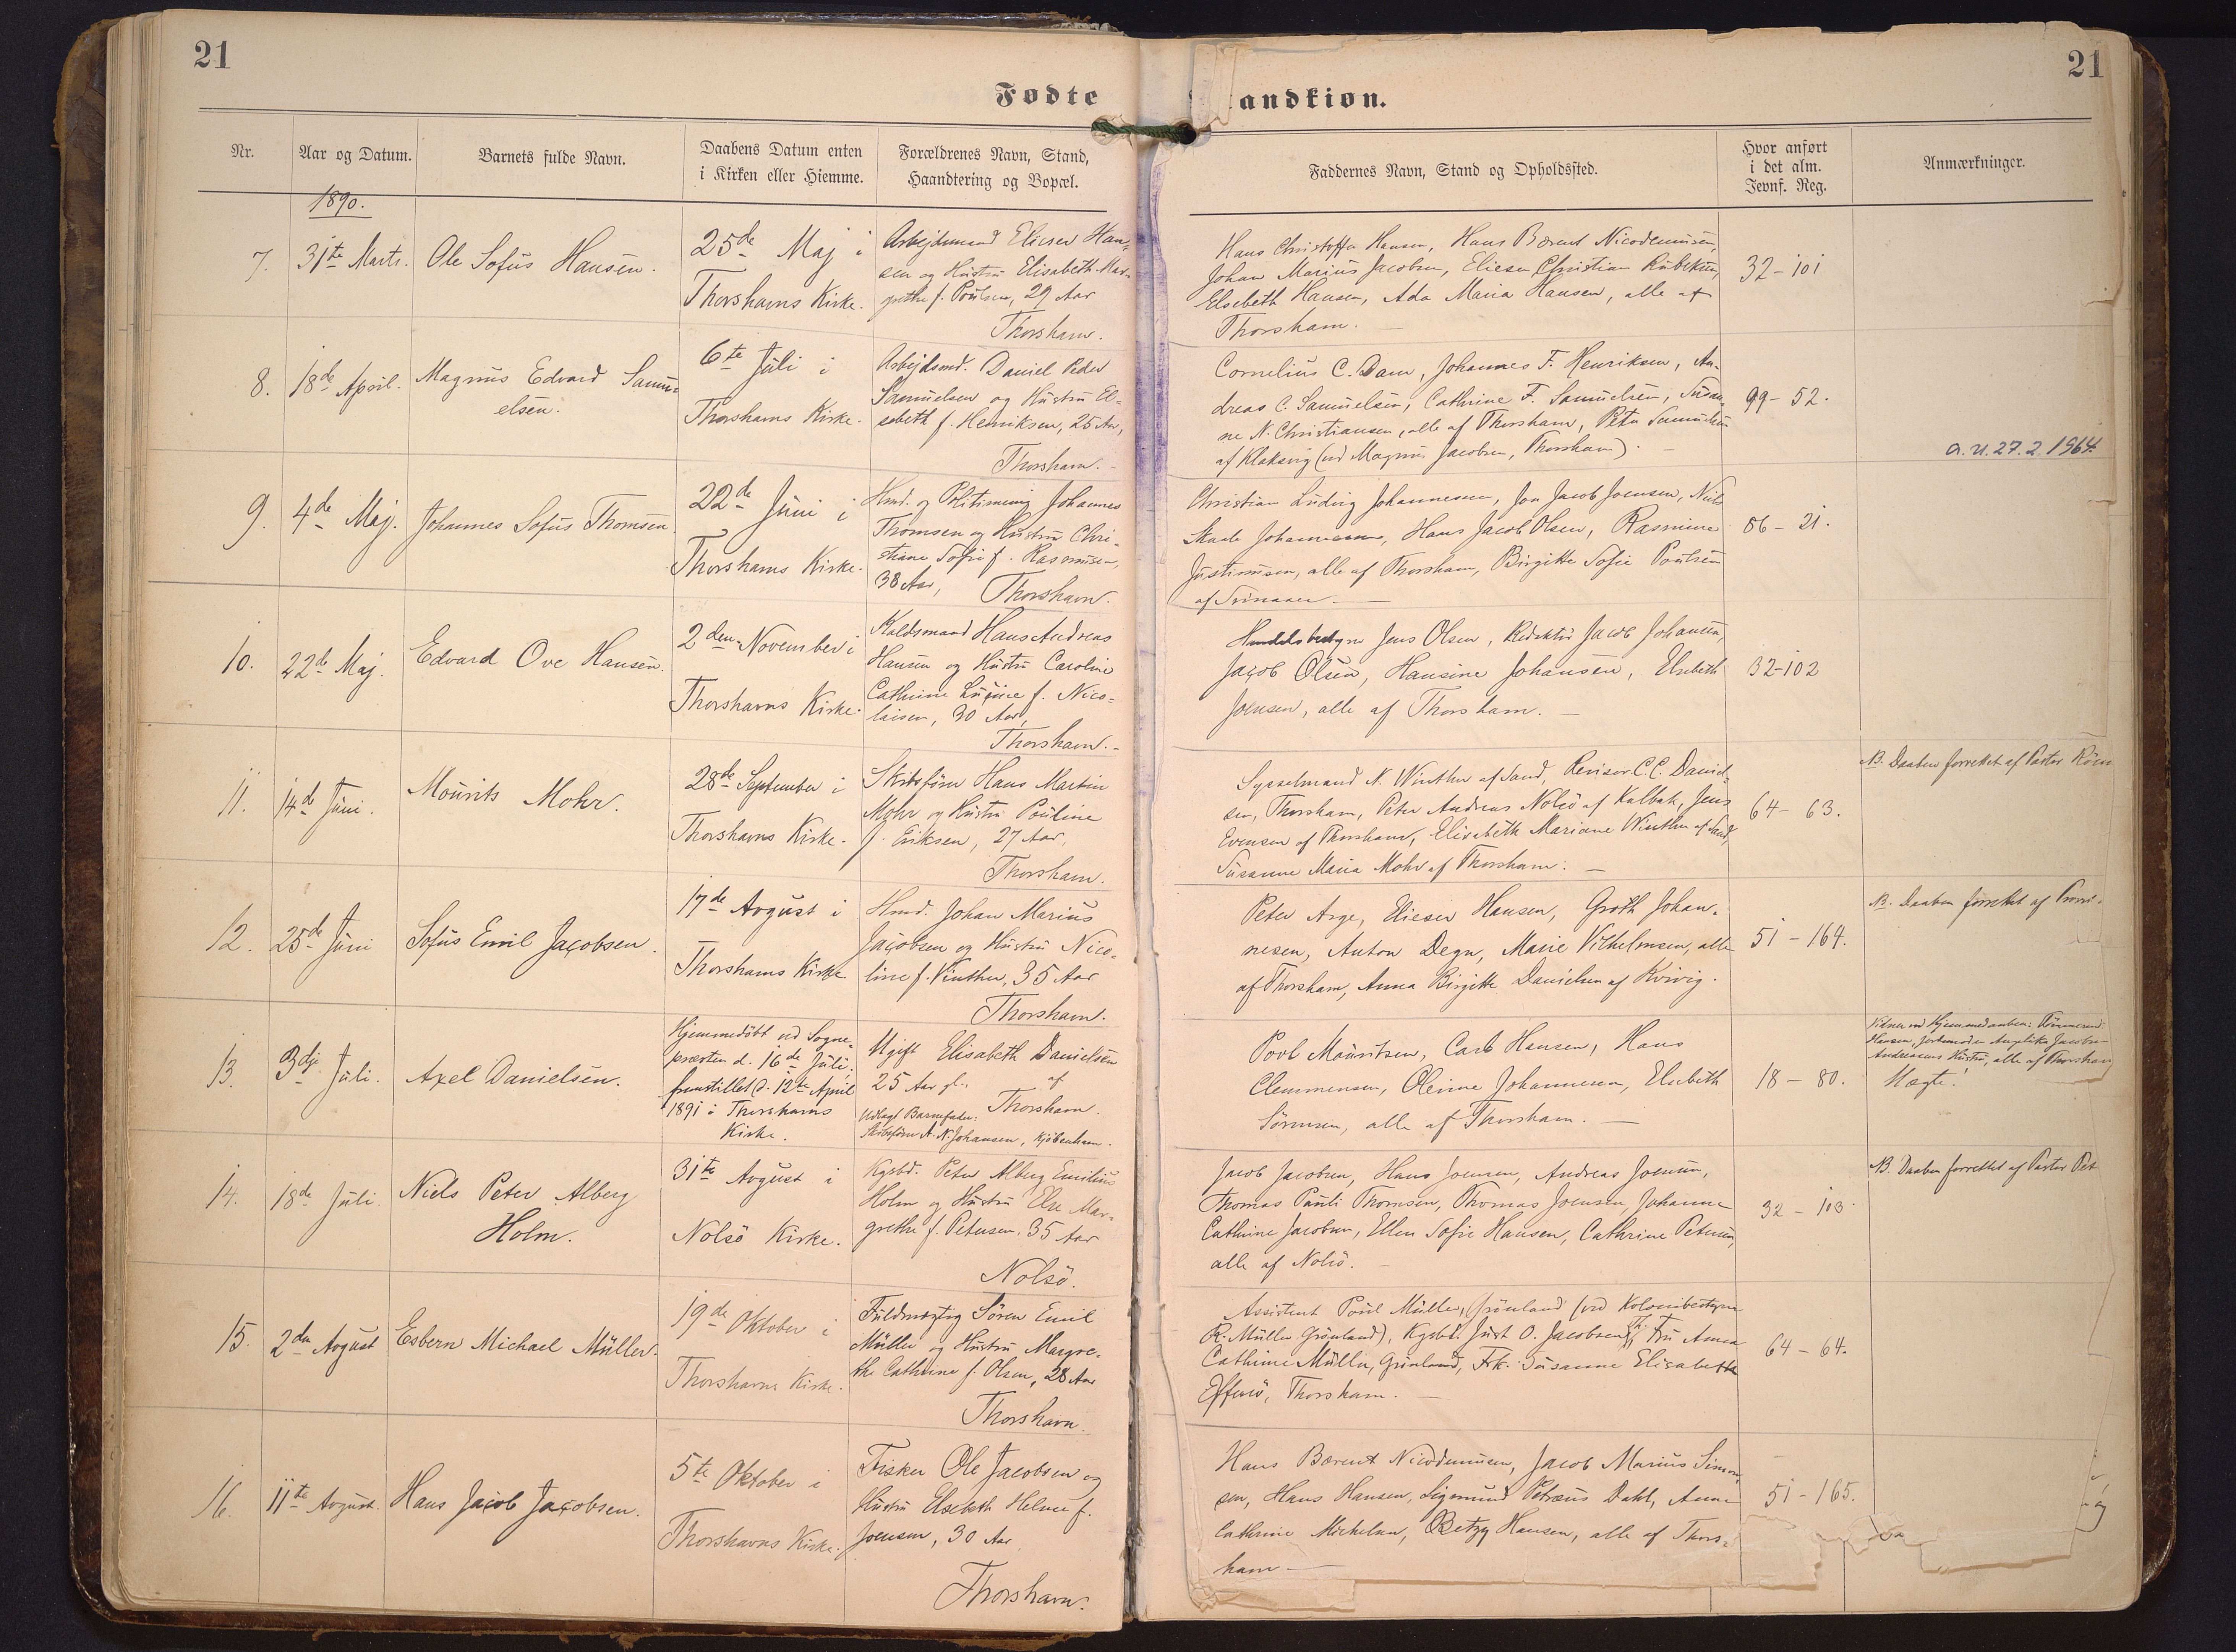 21
21
Fødte
andkiøn.
Nr.
Aar og Datum.
Barnets fulde Navn.
Daabens Datum enten
i Kirken eller Hiemme.
Forældrenes Navn, Stand,
Haandtering og Bopæl.
Faddernes Navn, Stand og Opholdssted.
Hvor anført
i det alm.
Jevnf. Reg.
Anmærkninger.
1890.
7.
31te Marts.
Ole Sofus Hansen.
25de Maj i
Thorshavns Kirke.
Arbejdsmand Elieser Han-
sen og Hustru Elisabeth Mar-
grethe f. Poulsen, 29 Aar
Thorshavn.
Hans Christoffer Hansen, Hans Bærent Nicodemussen,
Johan Marius Jacobsen, Elieser Christian Rubeksen,
Elsebeth Hansen, Ada Maria Hansen, alle af
Thorshavn.
32-101
8.
18de April.
Magnus Edvard Samu-
elsen.
6te Juli i
Thorshavns Kirke.
Arbejdsmd. Daniel Peder
Samuelsen og Hustru El-
sebeth f. Henriksen, 25 Aar,
Thorshavn.
Cornelius C. Dam, Johannes F. Henriksen, An-
dreas C. Samuelsen, Cathrine F. Samuelsen, Susan-
ne N. Christiansen, alle af Thorshavn, Peter Samuelsen
af Klaksvig (ved Magnus Jacobsen, Thorshavn)
99-52.
a. u. 27.2 1964.
9.
4de Maj.
Johannes Sofus Thomsen
22de Juni i
Thorshavns Kirke.
Hmd. og Politimening Johannes
Thomsen og Hustru Chri-
stiane Sofie f. Rasmussen,
38 Aar, Thorshavn.
Christian Ludvig Johannesen, Jon Jacob Joensen, Niels
Johannesen, Hans Jacob Olsen, Rasmine
Justinussen, alle af Thorshavn, Birgitte Sofie Poulsen
af Svinaaer.
86-21.
10.
22de Maj.
Edvard Ove Hansen.
2den November i
Thorshavns Kirke.
Koldsmand Hans Andreas
Hansen og Hustru Caroline
Cathrine Lucine f. Nico-
laisen, 30 Aar,
Thorshavn.
Handelsbestyrer Jens Olsen, Redaktør Jacob Johansen,
Jacob Olsen, Hansine Johansen, Elsebeth
Joensen, alle af Thorshavn.
32-102
11.
14de Juni.
Mourits Mohr.
28de September i
Thorshavns Kirke.
Skibsfører Hans Martin
Mohr og Hustru Pouline
f. Eriksen, 27 Aar,
Thorshavn.
Sysselmand N. Winther af Sand, Revisor C.C. Daniel-
sen, Thorshavn, Peter Andreas Nolsø af Kalbak, Jens
Evensen af Thorshavn, Elisabeth Mariane Winther af Sand,
Susanne Maria Mohr af Thorshavn.
64-63.
NB. Daaben forrettet af Pastor
12.
25de Juni
Sofus Emil Jacobsen.
17de Avgust i
Thorshavns Kirke
Hmd. Johan Marius
Jacobsen og Hustru Nico-
line f. Vinther, 35 Aar
Thorshavn.
Peter Arge, Elieser Hansen, Groth Johan-
nesen, Anton Degn, Marie Vilhelmsen, alle
af Thorshavn, Anna Birgitte Danielsen af Kvivig.
51-164.
NB. Daaben forrettet af
13.
3die Juli.
Axel Danielsen.
Hjemmedöbt ved Sogne-
præsten d. 16de Juli,
fremstillet d. 12te April
1891 i Thorshavns
Kirke.
Ugift Elisabeth Danielsen
25 Aar gl., af
Thorshavn.
Udlagt Barnefader:
Skibsfører A. N. Johansen, Kjöbenhavn.
Povl Mauritsen, Carl Hansen, Hans
Clemmensen, Olevine Johannesen, Elsebeth
Sörensen, alle af Thorshavn.
18-80.
Vidner ved Hjemmedaaben:
Hansen, Jordemoder Angelika Jacobsen
Andreasens Hustru, alle af Thorshavn
Uægte!
14.
18de Juli
Niels Peter Alberg
Holm.
31te Avgust i
Nolsö Kirke.
Kgsbd. Peter Alberg Emilius
Holm og Hustru Else Mar-
grethe f. Petersen, 35 Aar
Nolsö.
Jacob Jacobsen, Hans Joensen, Andreas Joensen,
Thomas Pauli Thomsen, Thomas Joensen, Johanne
Cathrine Jacobsen, Ellen Sofie Hansen, Cathrine Petersen,
alle af Nolsö.
32-103.
NB. Daaben forrettet af Pastor Pet
15.
2den Avgust
Esbern Michael Müller.
19de Oktober i
Thorshavns Kirke.
Fuldmægtig Sören Emil
Müller og Hustru Margre-
the Cathrine f. Olsen, 28 Aar
Thorshavn
Assistent Poul Müller, Grönland (ved Kolonibestyrer
R. Müller Grönland), Kgsbd. Just O. Jacobsen, Th., Fru Anna
Cathrine Müller, Grönland, Frk. Susanne Elisabeth
Effersö, Thorshavn.
64-64.
16.
11te Avgust.
Hans Jacob Jacobsen.
5te Oktober i
Thorshavns Kirke.
Fisker Ole Jacobsen og
Hustru Elsebeth Helene f.
Joensen, 30 Aar
Thorshavn.
Hans Bærent Nicodemussen, Jacob Marius Simon-
sen, Hans Hansen, Sigmund Petræus Dahl, Anne
Cathrine Michelsen, Betzy Hansen, alle af Thors-
havn
51-165.